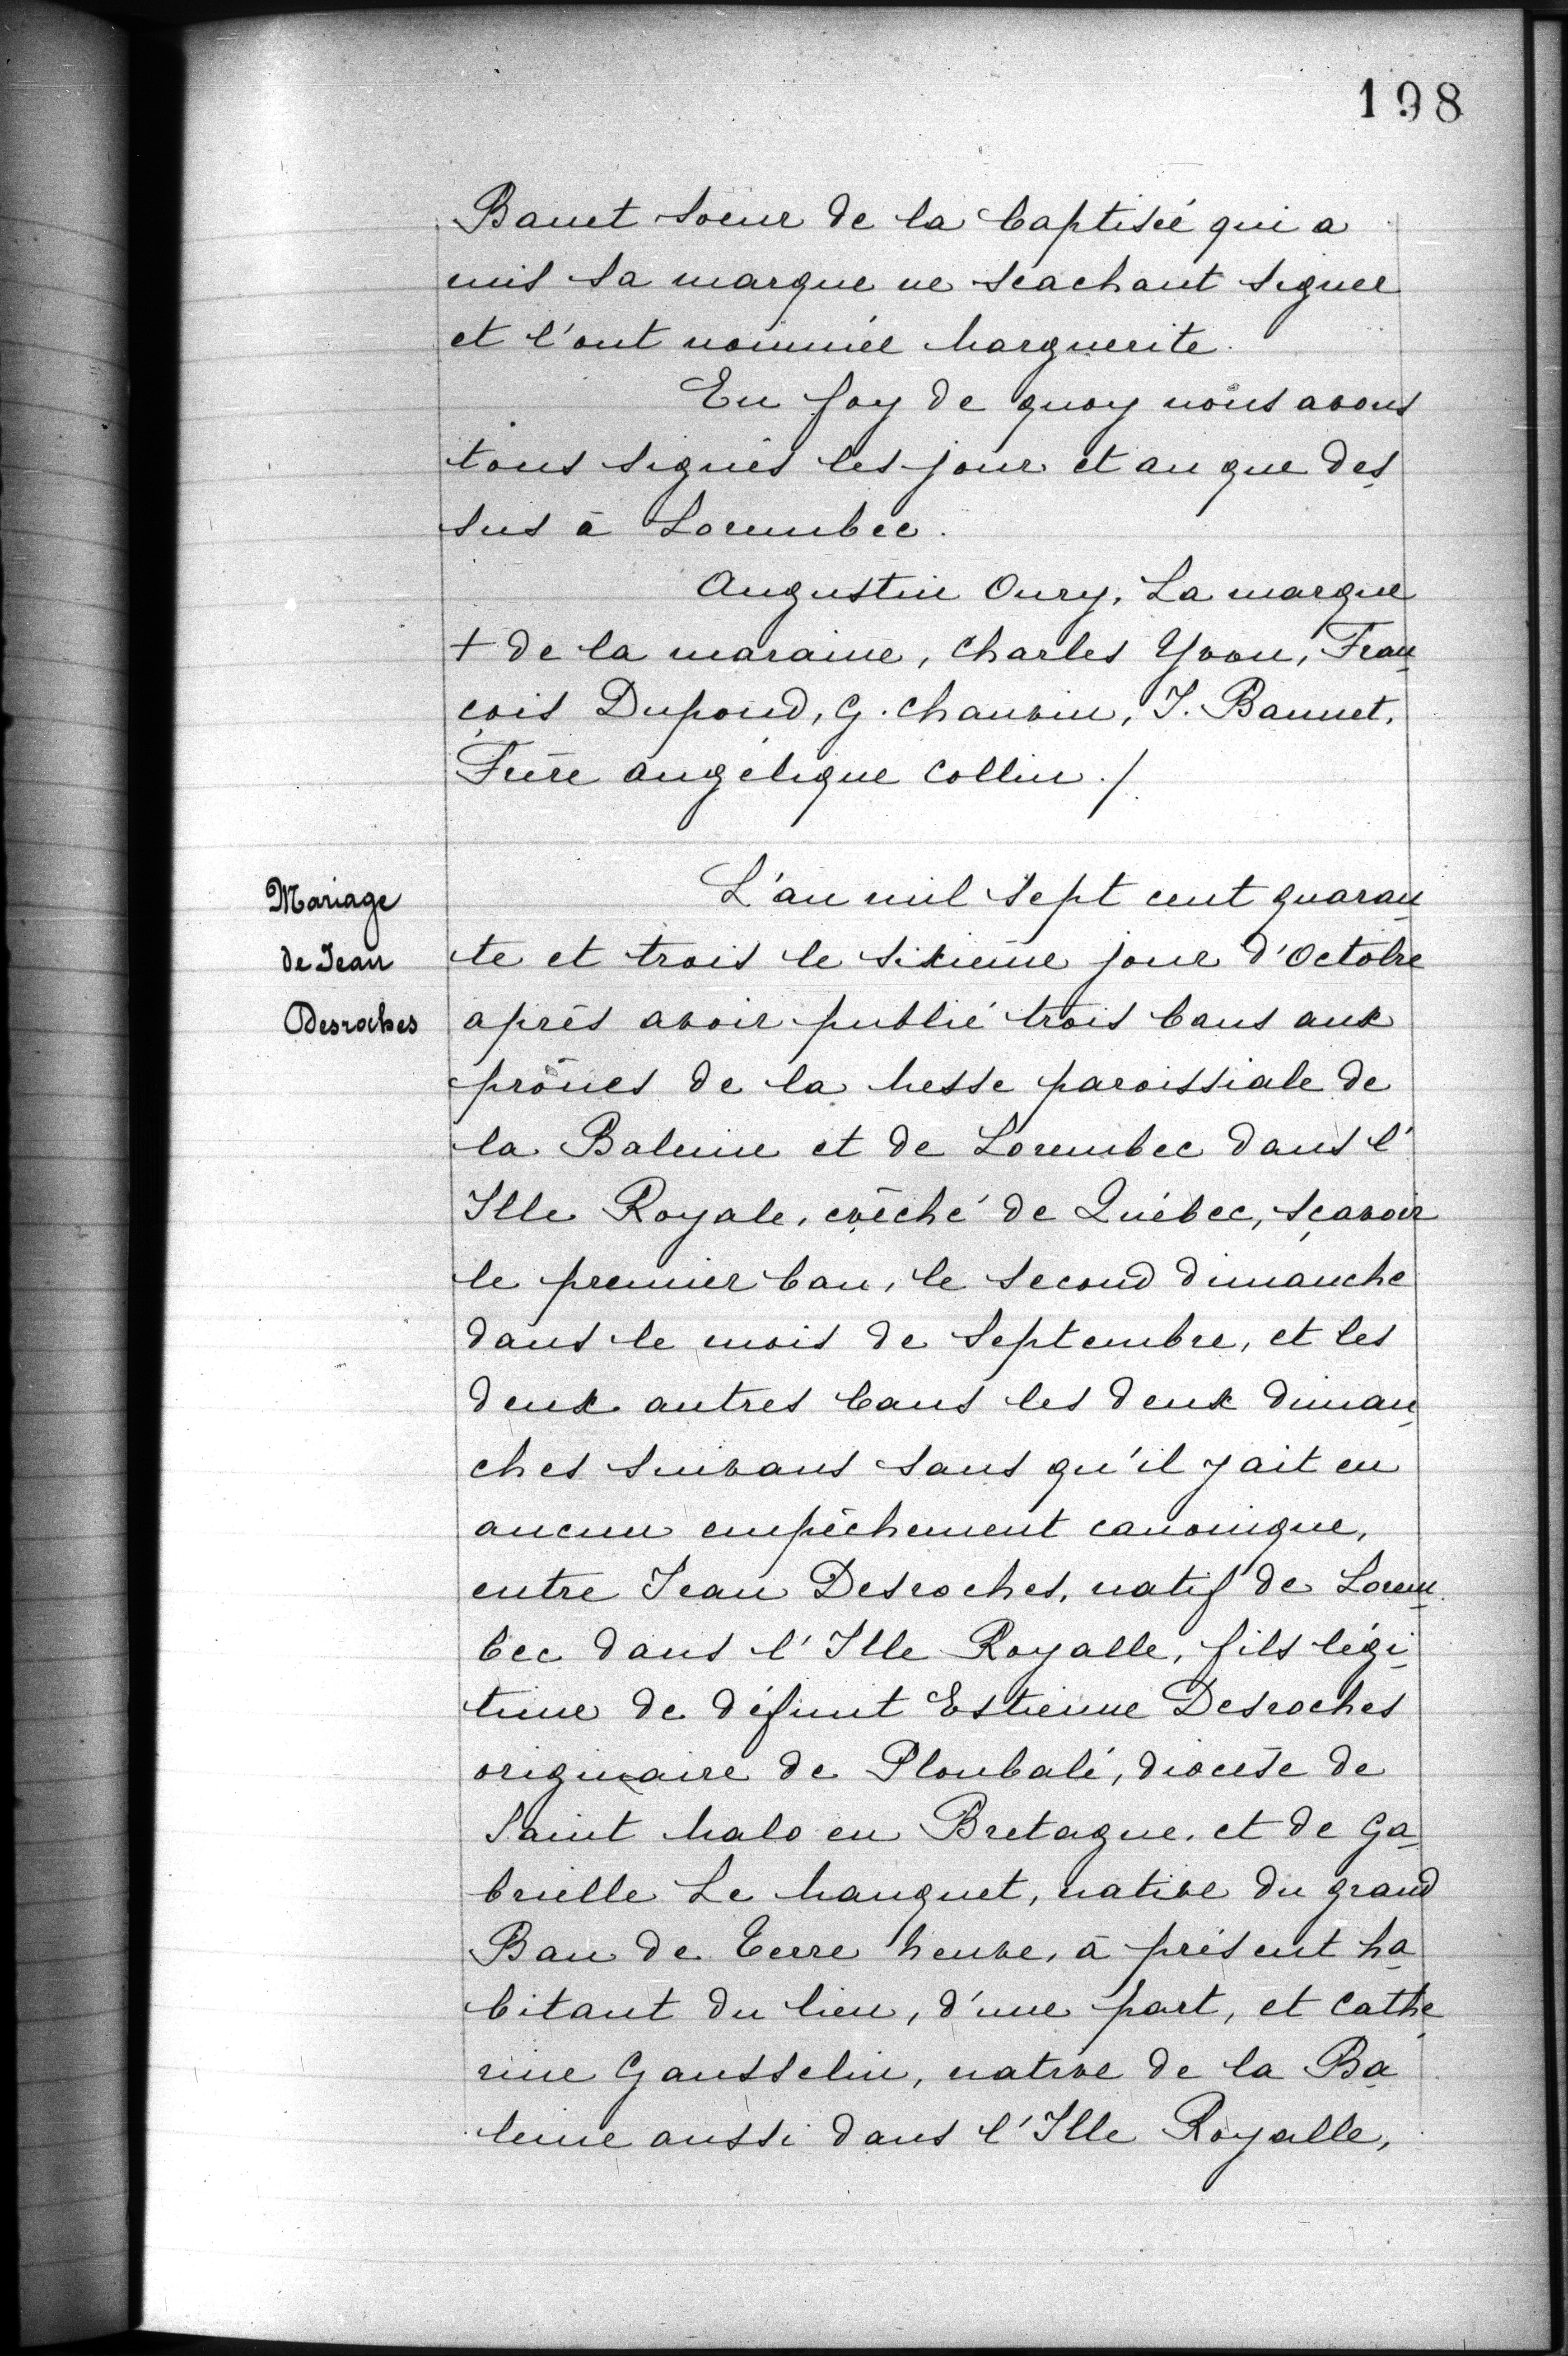 198
Bauet soeur de la baptisée qui a
mis sa marque ne scachant signer
et l'ont nommée Marguerite.
En foy de quoy nous avons
tous signés les jour et an que des
sus à Lorembec.
Augustin Oury, La marque
+ de la maraine, Charles Yvon, Fran
çois Dupond, G. Chauvin, J. Baunet,
Frère angélique Collin ./.
Mariage
de Jean
Desroches
L'an mil sept cent quaran
te et trois le sixième jour d'Octobre
après avoir publié trois bans aux
prônes de la Messe paroissiale de
la Baleine et de Lorembec dans l'
Isle Royale, evêché de Québec, sçavoir
le premier ban, le second dimanche
dans le mois de Septembre, et les
deux autres bans les deux diman
ches suivans sans qu'il y ait eu
aucun empêchement canonique,
entre Jean Desroches, natif de Lorem
bec dans l'Isle Royalle, fils légi
time de défunt Estienne Desroches
originaire de Ploubalé, diocèse de
Saint Malo en Bretagne, et de Ga
brielle Le Manquet, native du grand
Ban de Terre Neuve, à présent ha
bitant du lieu, d'une part, et Cathe
rine Gausselin, native de la Ba
leine aussi dans l'Isle Royalle,